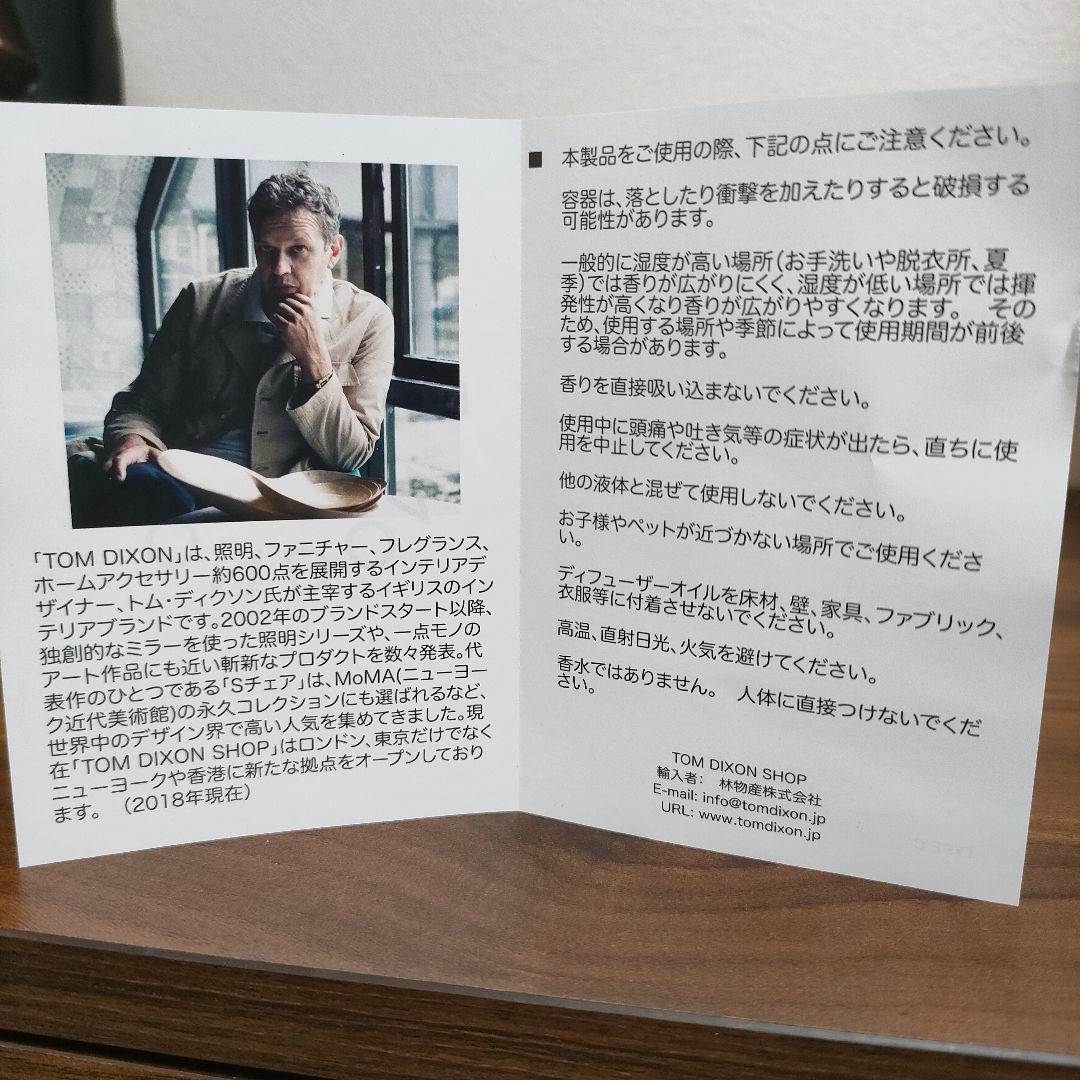 「TOM DIXON」は、照明、ファニチャー、フレグランス、
ホームアクセサリー約600点を展開するインテリアデ
ザイナー、トム・ディクソン氏が主宰するイギリスのイン
テリアブランドです。2002年のブランドスタート以降、
独創的なミラーを使った照明シリーズや、一点モノの
アート作品にも近い斬新なプロダクトを数々発表。代
表作のひとつである「Sチェア」は、MoMA(ニューヨー
ク近代美術館)の永久コレクションにも選ばれるなど、
世界中のデザイン界で高い人気を集めてきました。現
在「TOM DIXON SHOP」はロンドン、東京だけでなく
ニューヨークや香港に新たな拠点をオープンしており
ます。 （2018年現在）
■ 本製品をご使用の際、下記の点にご注意ください。
容器は、落としたり衝撃を加えたりすると破損する
可能性があります。
一般的に湿度が高い場所（お手洗いや脱衣所、夏
季）では香りが広がりにくく、湿度が低い場所では揮
発性が高くなり香りが広がりやすくなります。 その
ため、使用する場所や季節によって使用期間が前後
する場合があります。
香りを直接吸い込まないでください。
使用中に頭痛や吐き気等の症状が出たら、直ちに使
用を中止してください。
他の液体と混ぜて使用しないでください。
お子様やペットが近づかない場所でご使用くださ
い。
ディフューザーオイルを床材、壁、家具、ファブリック、
衣服等に付着させないでください。
高温、直射日光、火気を避けてください。
香水ではありません。 人体に直接つけないでくだ
さい。
TOM DIXON SHOP
輸入者： 林物産株式会社
E-mail: info@tomdixon.jp
URL: www.tomdixon.jp